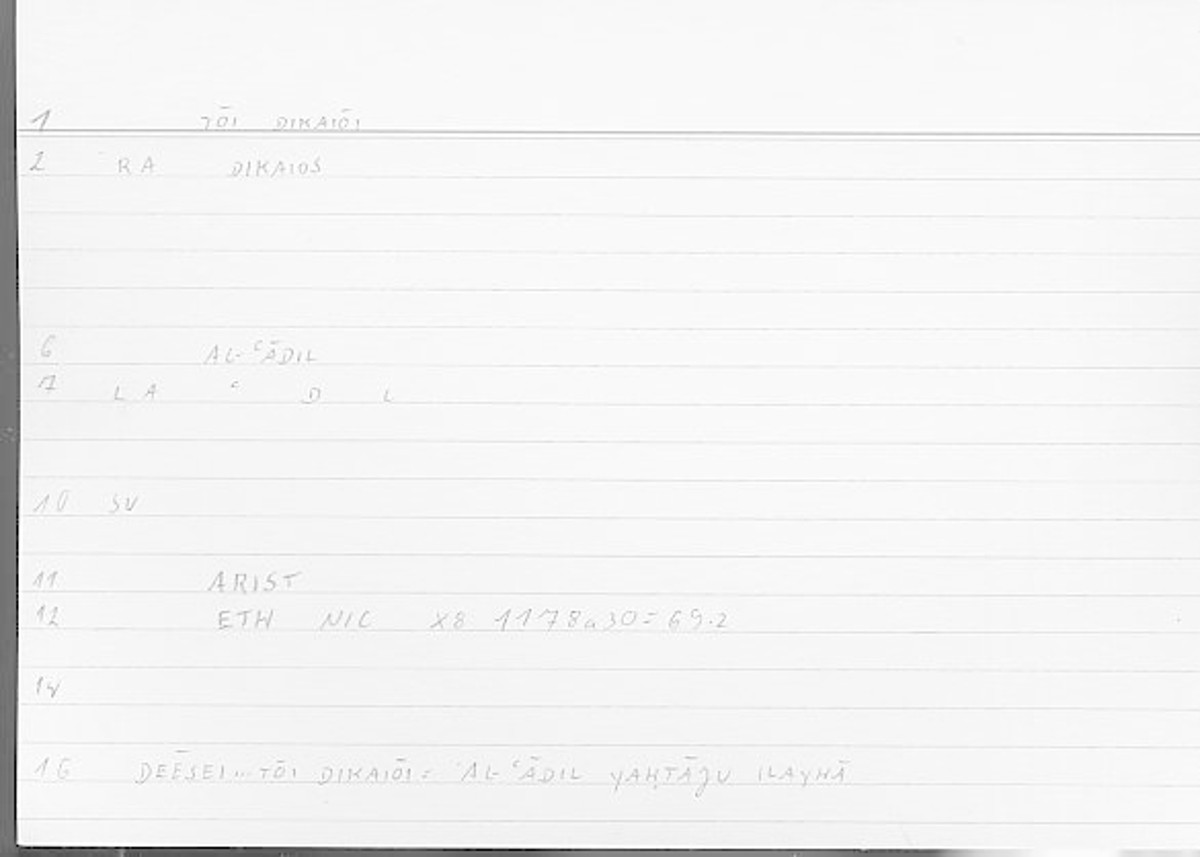 1 TŌI DIKAIŌI
2 RA DIKAIOS
6 AL-ʿĀDIL
7 L A ʿ D L
10 SV
11 ARIST
12 ETH NIC X8 1178a30=69.2
14
16 DEĒSEI...TŌI DIKAIŌI= AL-ʿĀDIL YAḤTĀǦU ILAYHĀ